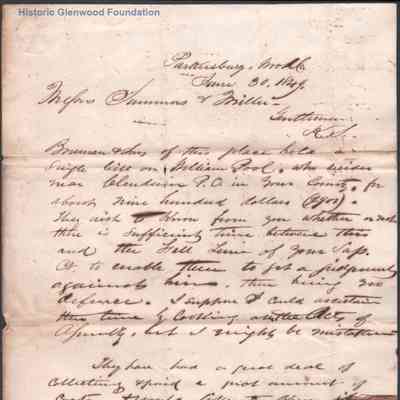 Historic Glenwood Foundation
Parkersburg, Wood Co
June 30, 1849
Messrs Summers & Miller
Gentlemen
of this place hold a
single bill on William Pool, who resides
near Clendenin P.O in your County, for
about nine hundred dollars ($900).
They wish to know from you whether or not
there is sufficient time between this
and the Fall Term of your Sup.
Ct to enable them to get a judgment
against him, there being no
defence. I suppose I could ascertain
this time by looking at the Acts of
Assembly, but I might be mistaken
They have had a great deal of
collecting & paid a great amount of